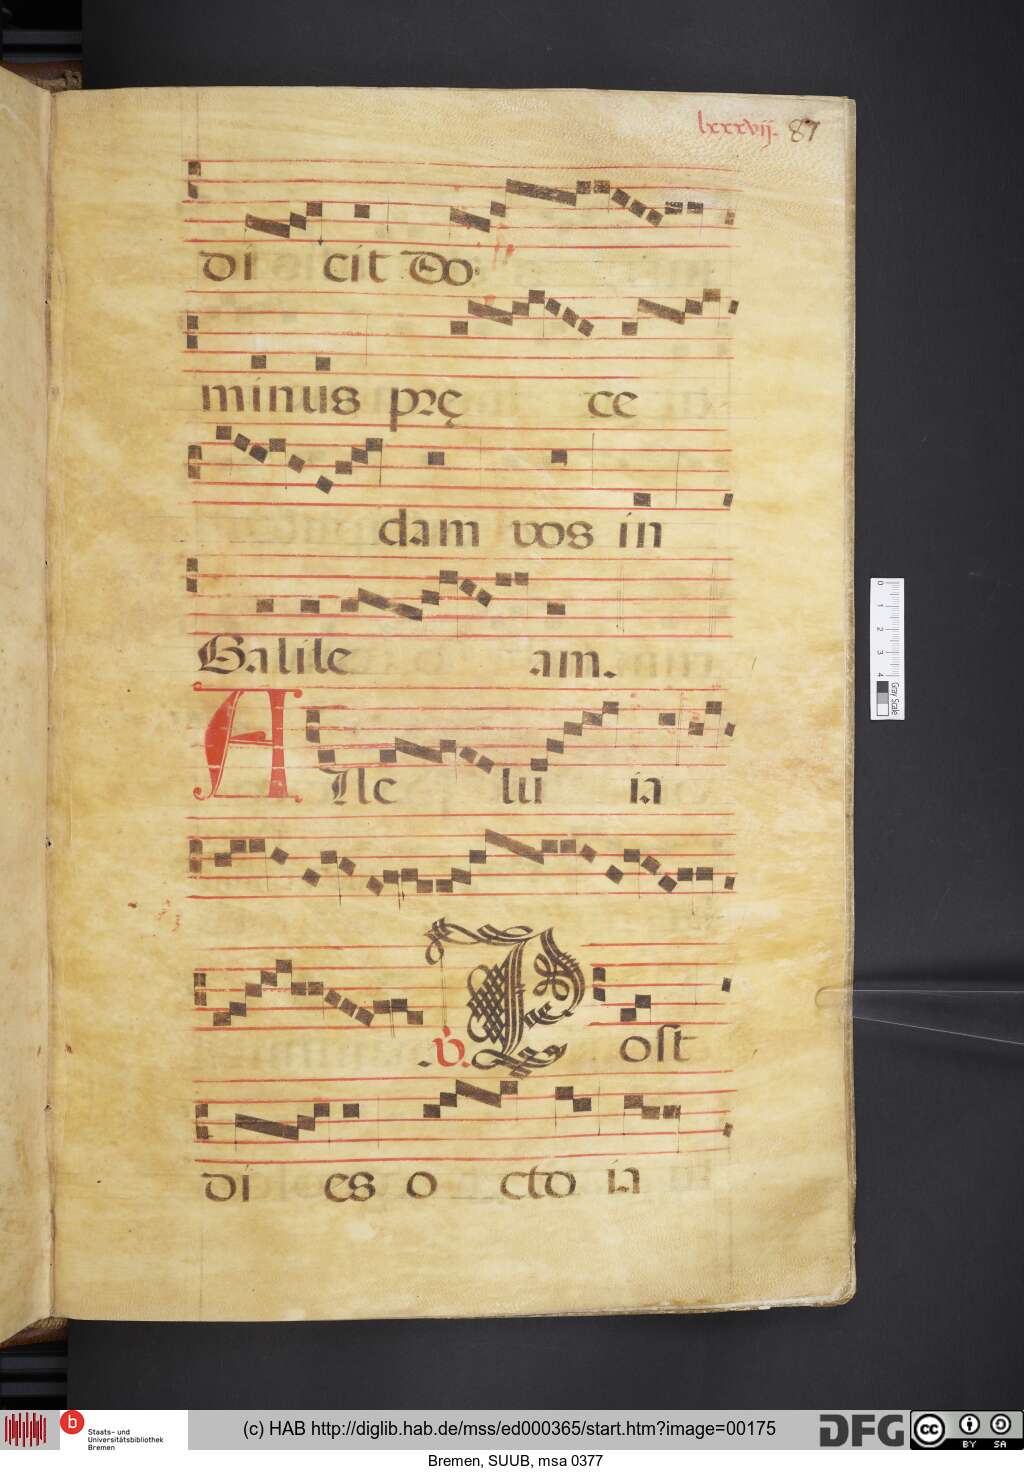 lxxxvij. 87
di cit Do
minus prę ce
dam vos in
Galile am.
A lle lu ia
.V. P ost
di es o cto ia
0 1 2 3 4
Gray Scale
b Staats- und Universitätsbibliothek Bremen
(c) HAB http://diglib.hab.de/mss/ed000365/start.htm?image=00175
DFG
cc BY SA
Bremen, SUUB, msa 0377